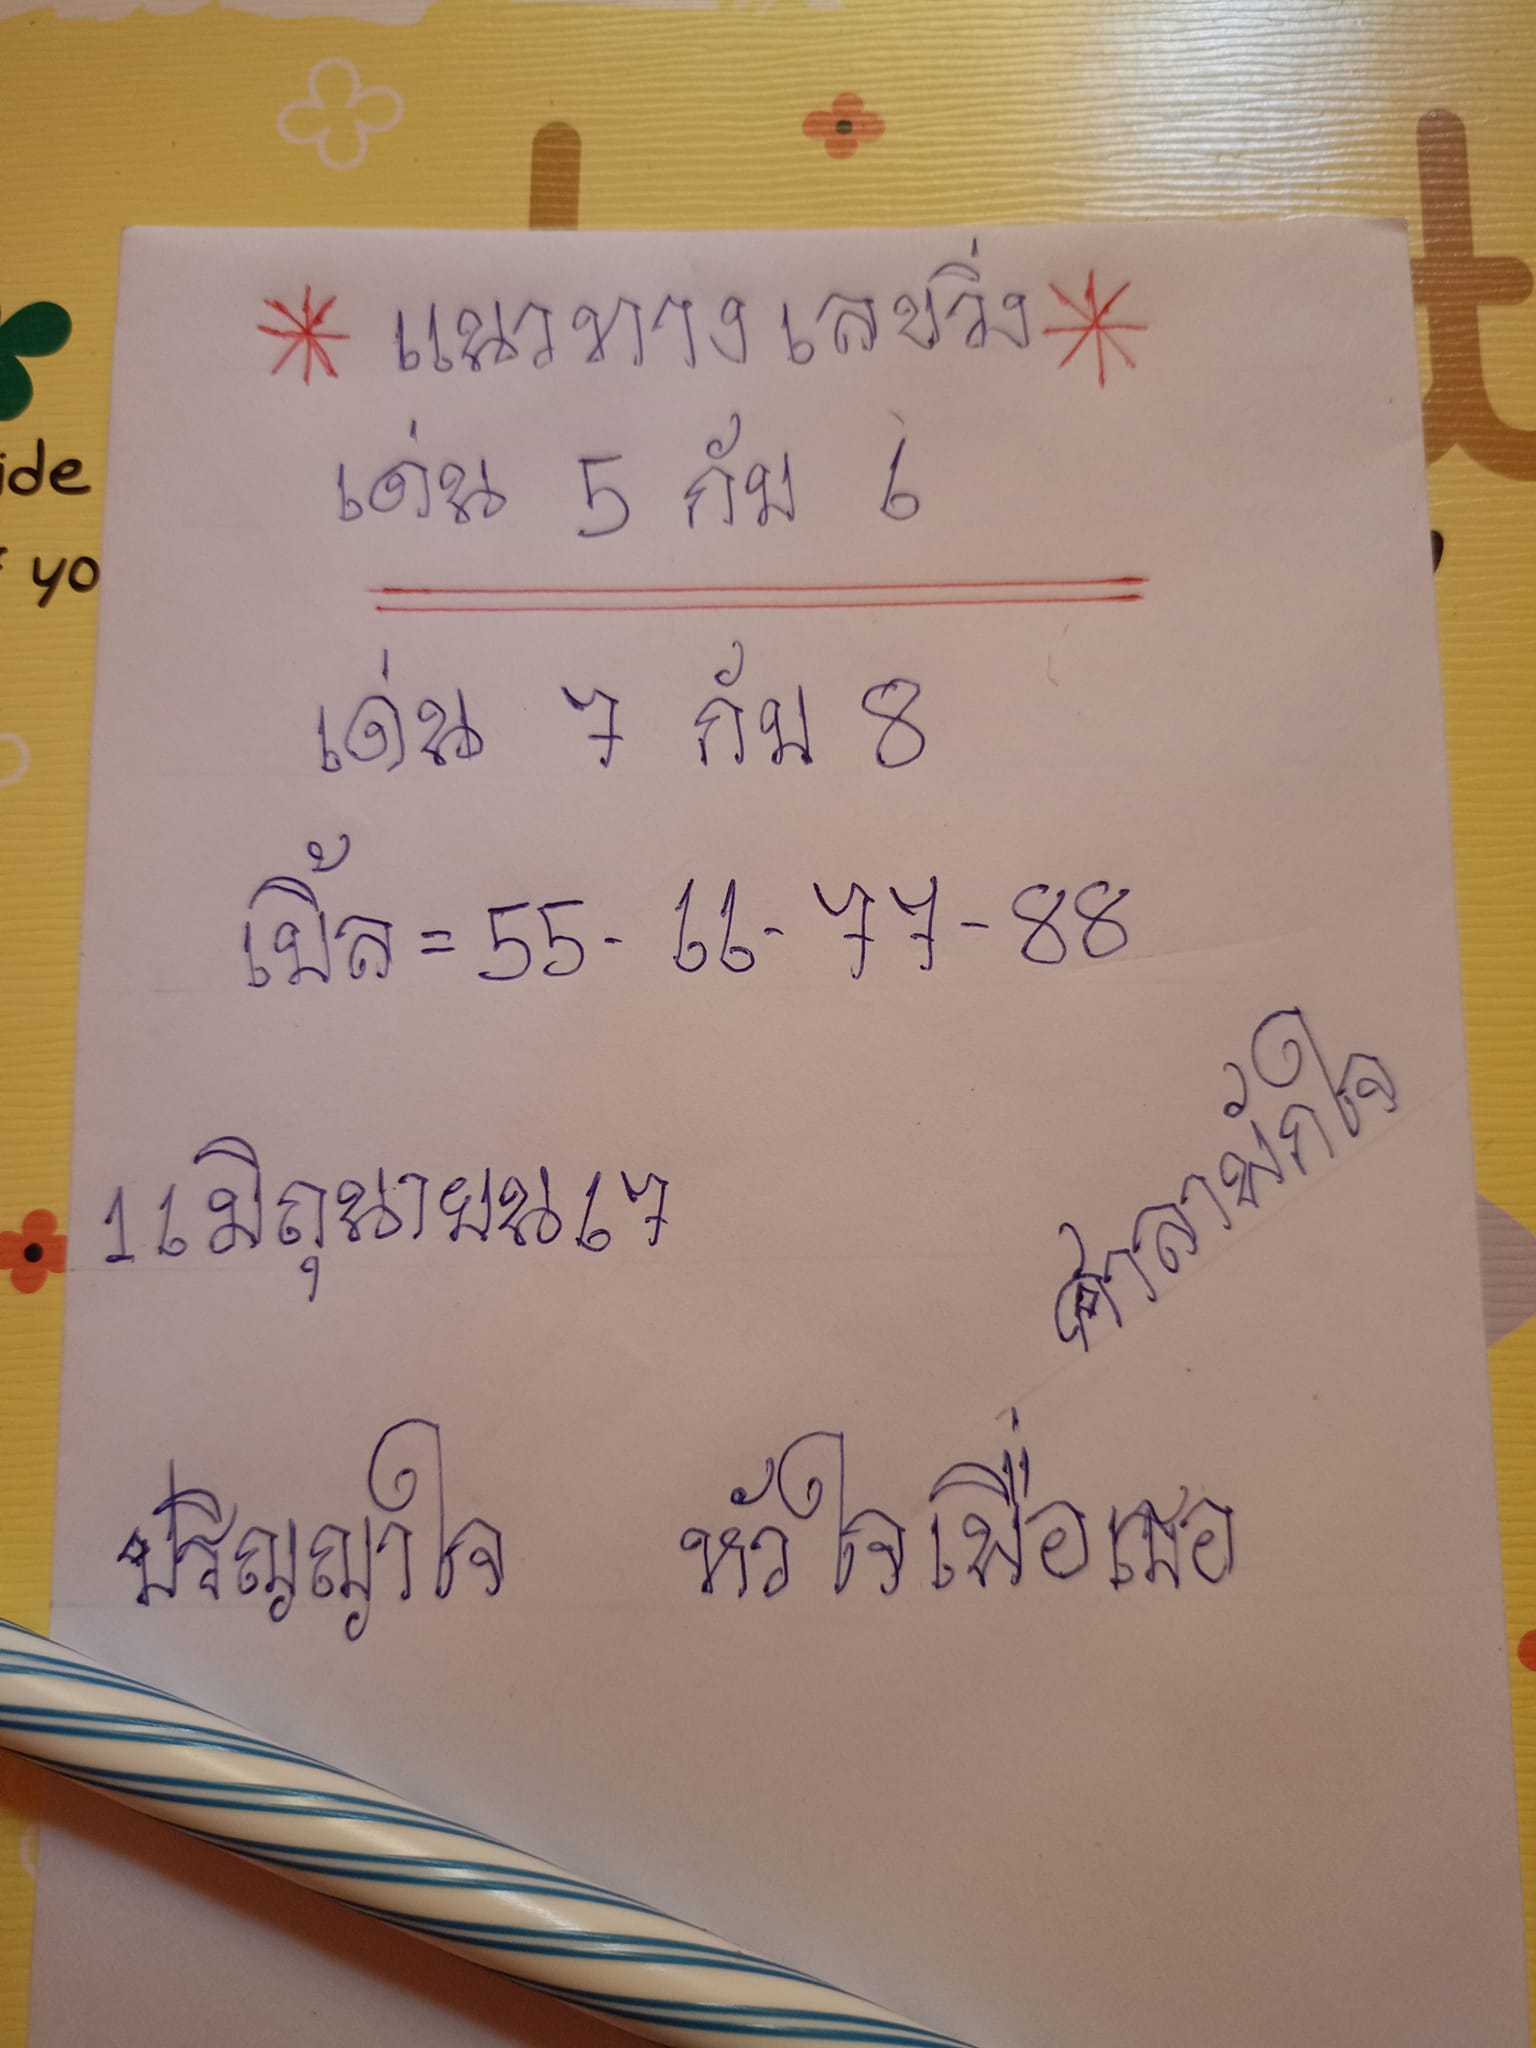 * แนวทางเลขวิ่ง *
เด่น 5 กับ 6
เด่น 7 กับ 8
เบิ้ล = 55 - 66 - 77 - 88
16 มิถุนายน 67
ศาลาพักใจ
ปริญญาใจ หัวใจเพื่อเธอ
ide
yo
t